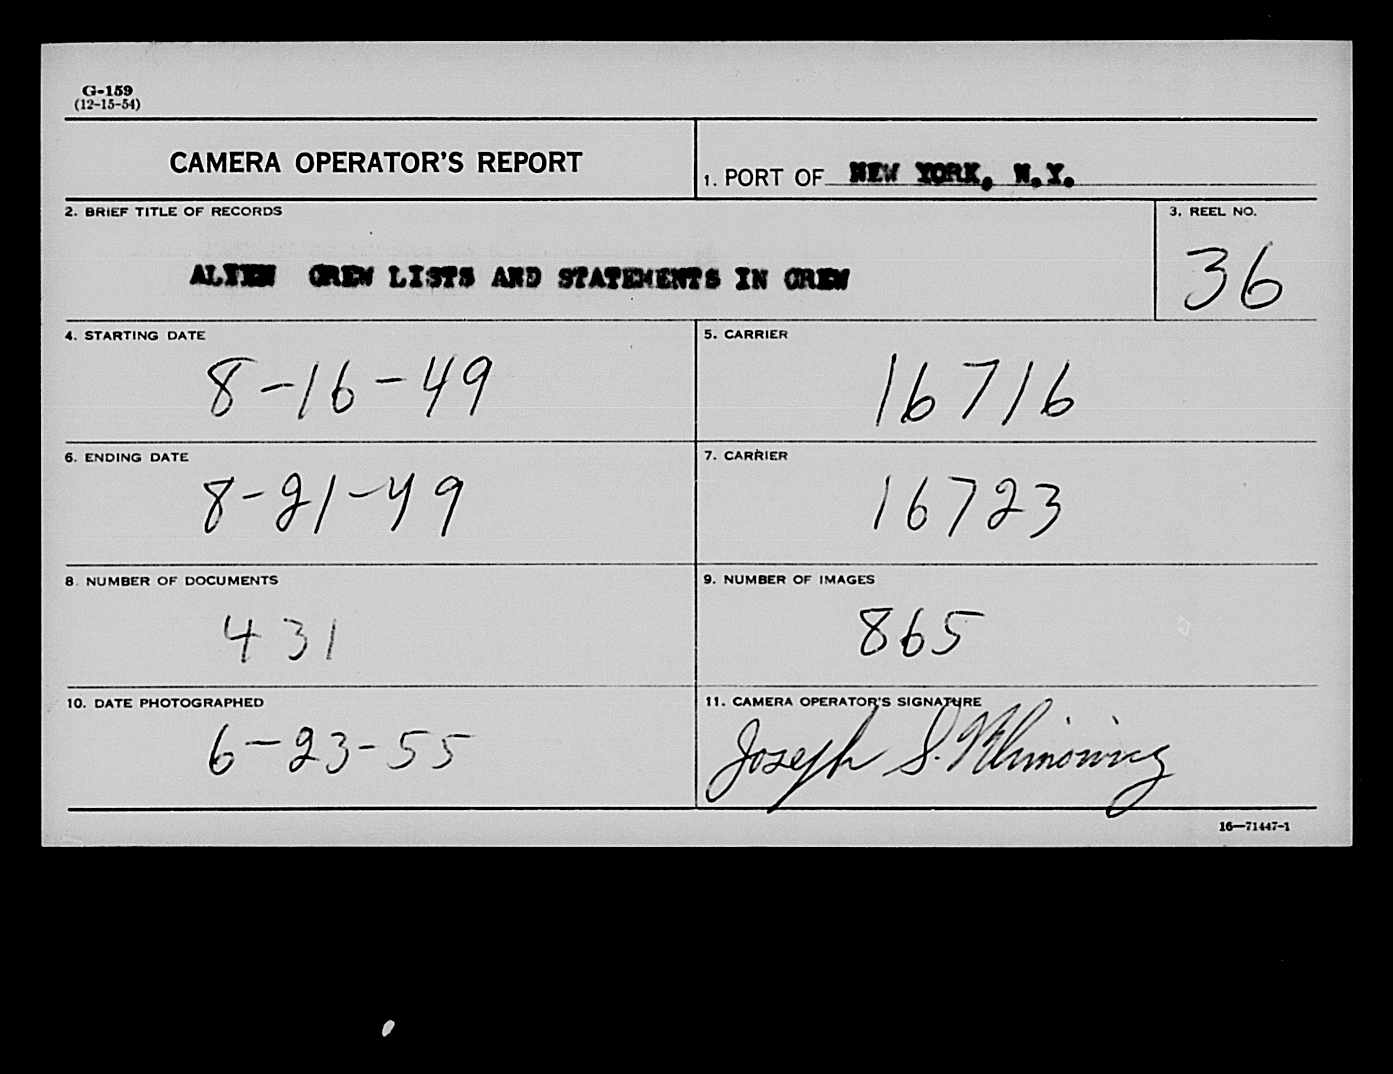 G-159
(12-15-54)
CAMERA OPERATOR'S REPORT
1. PORT OF NEW YORK, N.Y.
2. BRIEF TITLE OF RECORDS
3. REEL NO.
ALIEN CREW LISTS AND STATEMENTS IN CREW
36
4. STARTING DATE
5. CARRIER
8-16-49
16716
6. ENDING DATE
7. CARRIER
8-21-49
16723
8. NUMBER OF DOCUMENTS
9. NUMBER OF IMAGES
431
865
10. DATE PHOTOGRAPHED
11. CAMERA OPERATOR'S SIGNATURE
6-23-55
Joseph S.
16—71447-1